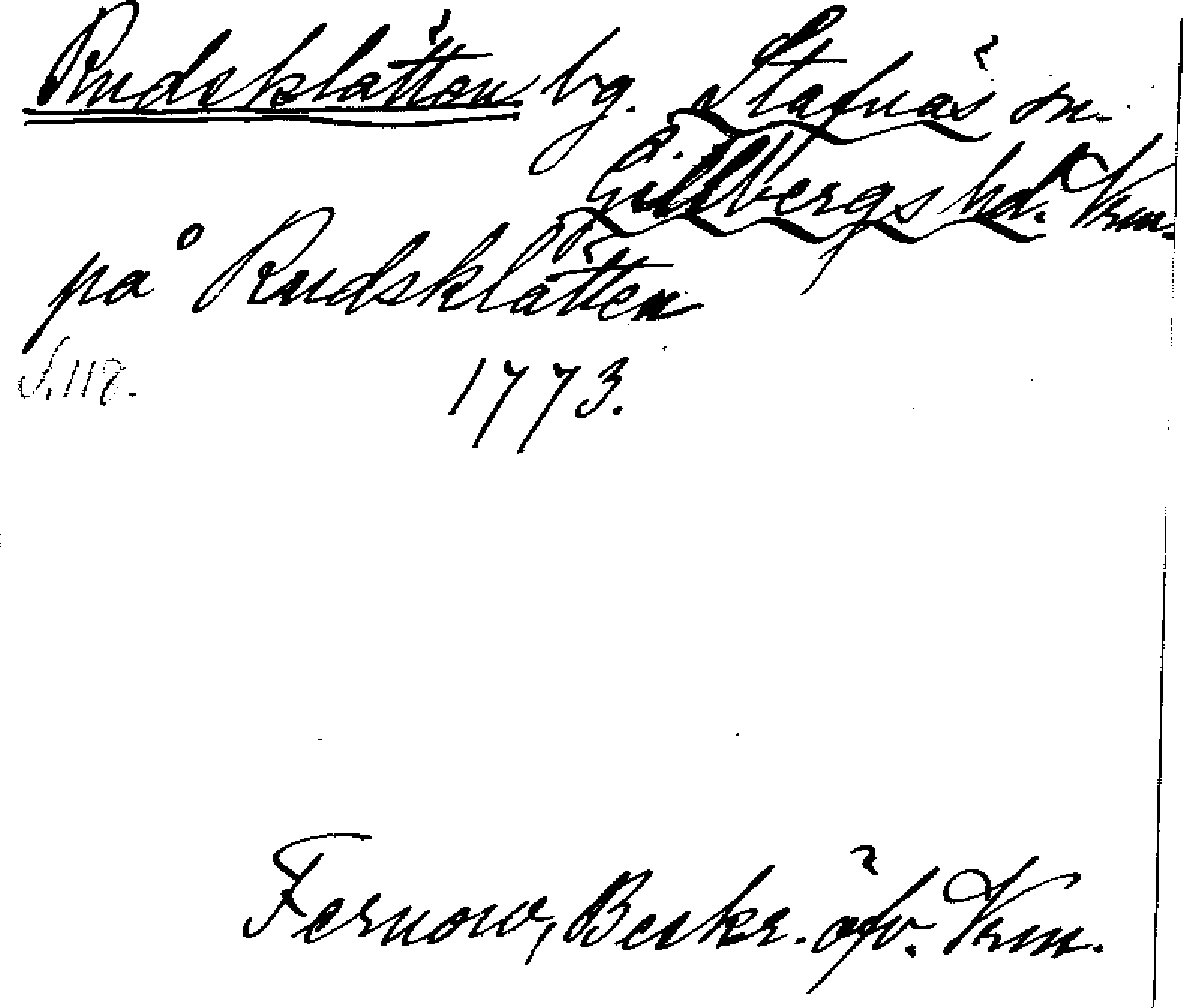 Rudsklätten bg. Stafnäs sn.
Gillbergs hd. Vrm.
på Rudsklätten
S. 118.
1773.
Fernow, Beskr. öfv. Vrm.